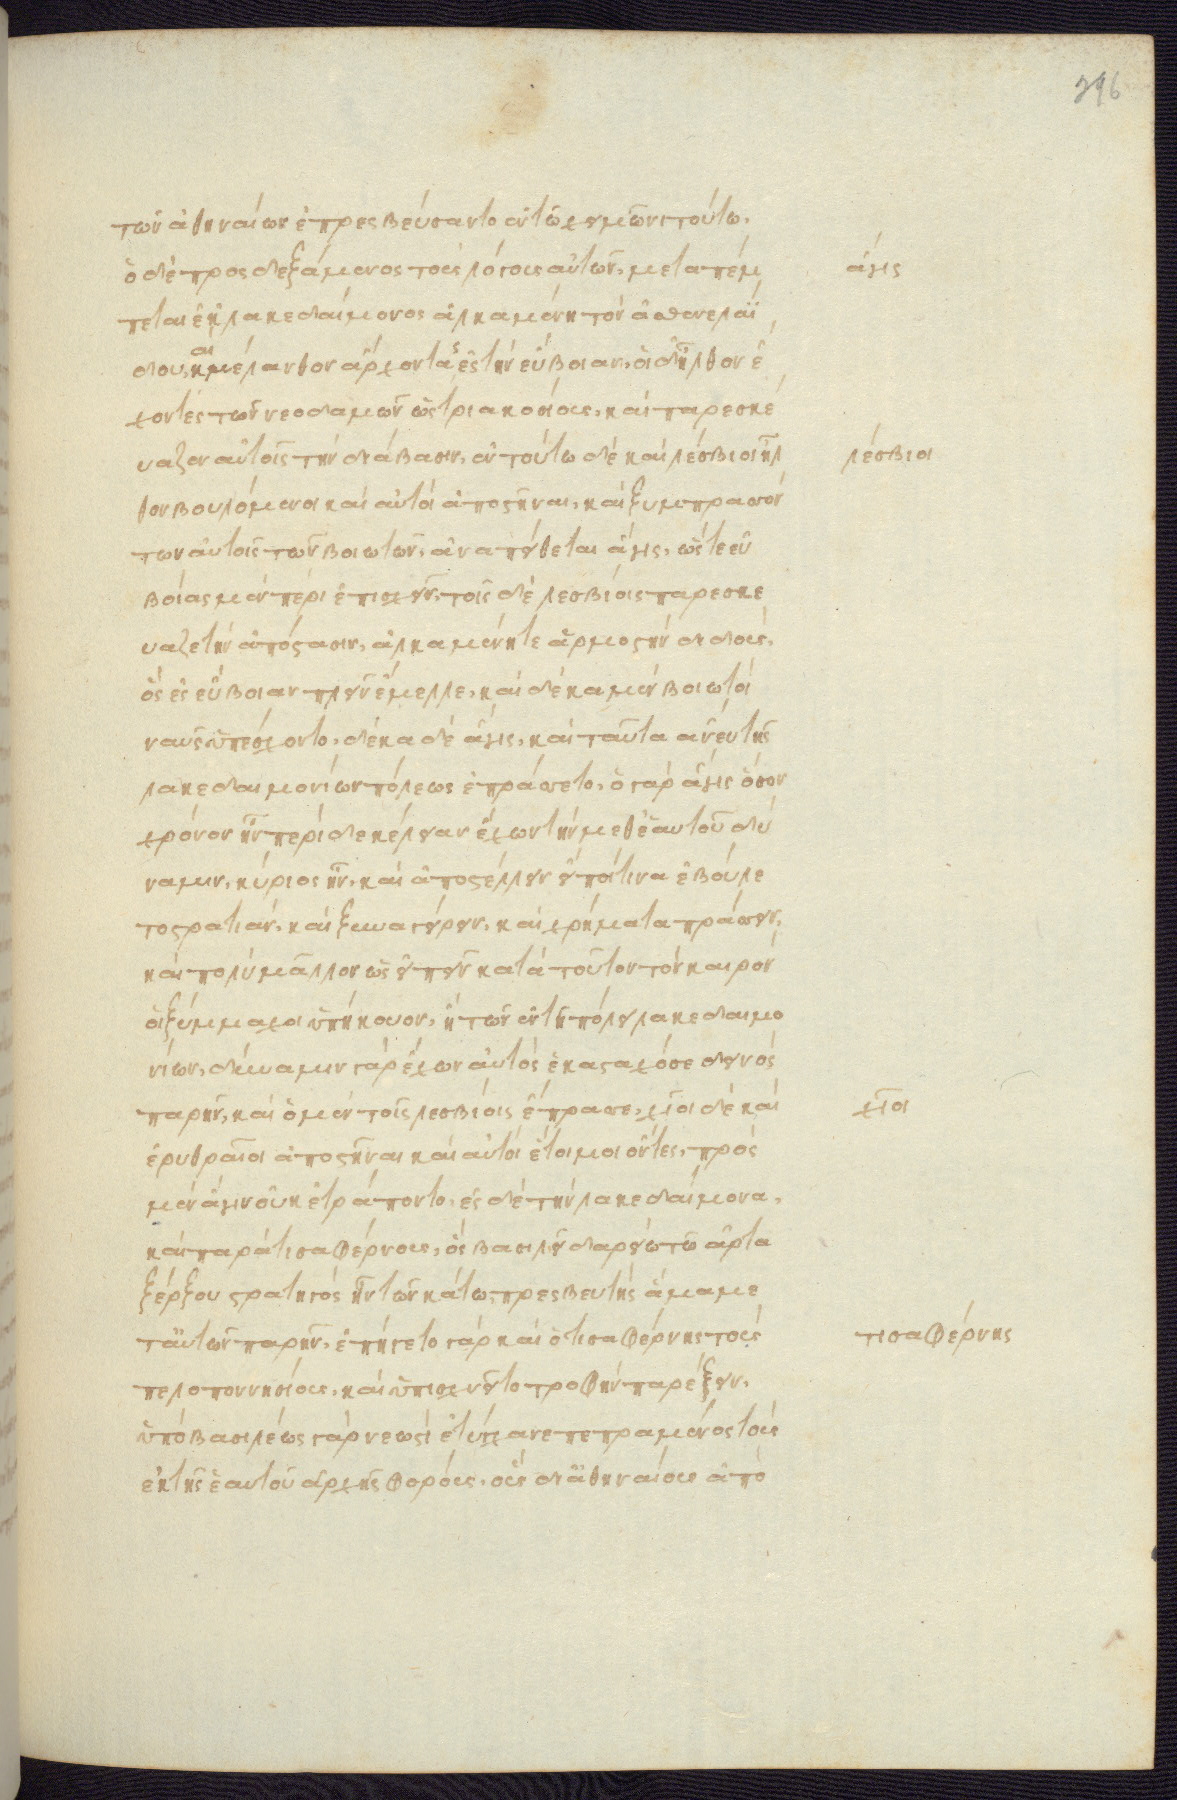 296
τῶν ἀθηναίων ἐπρεσβεύσαντο ἐν τῷ χειμῶνι τούτω.
ὁ δὲ προσδεξάμενος τοὺς λόγους αὐτῶν, μεταπέμ
πεται ἐκ λακεδαίμονος ἀλκαμένη τὸν ἀσθενελαΐ
δου, καὶ μέλανθον ἄρχοντας ἐς τὴν εὔβοιαν, οἱ δ' ἦλθον ἔ
χοντες τῶν νεοδαμῶν ὡς τριακοσίους, καὶ παρεσκέ
υαζον αὐτοῖς τὴν διάβασιν, ἐν τούτω δὲ καὶ λέσβιοι ἦλ
θον βουλόμενοι καὶ αὐτοὶ ἀποστῆναι, καὶ ξυμπρασσόν
των αὐτοῖς τῶν βοιωτῶν, ἀναπείθεται ἄγις, ὥστε εὐ
βοίας μὲν πέρι ἐπισχεῖν, τοῖς δὲ λεσβίοις παρεσκε
υαζε τὴν ἀπόστασιν, ἀλκαμένη τε ἁρμοστὴν διδοὺς,
ὃς ἐς εὔβοιαν πλεῖν ἔμελλε, καὶ δέκα μὲν βοιωτοὶ
ναῦς ὑπέσχοντο, δέκα δὲ ἄγις, καὶ ταῦτα ἄνευ τῆς
λακεδαιμονίων πόλεως ἐπράσσετο, ὁ γὰρ ἄγις ὅσον
χρόνον ἦν περὶ δεκέλειαν ἔχων τὴν μεθ' ἑαυτοῦ δύ
ναμιν, κύριος ἦν, καὶ ἀποστέλλειν εἴ ποί τινα ἐβούλε
το στρατιὰν, καὶ ξυναγείρειν, καὶ χρήματα πράσσειν,
καὶ πολὺ μᾶλλον ὡς εἰπεῖν κατὰ τοῦτον τὸν καιρὸν
οἱ ξύμμαχοι ὑπήκουον, ἢ τῶν ἐν τῇ πόλει λακεδαιμο
νίων, δύναμιν γὰρ ἔχων αὐτὸς ἑκασταχόσε δεινὸς
παρῆν, καὶ ὁ μὲν τοῖς λεσβίοις ἔπρασσε, χῖοι δὲ καὶ
ἐρυθραῖοι ἀποστῆναι καὶ αὐτοὶ ἑτοῖμοι ὄντες, πρὸς
μὲν ἄγιν οὐκ ἐτράποντο, ἐς δὲ τὴν λακεδαίμονα,
καὶ παρὰ τισαφέρνους, ὃς βασιλεῖ δαρείω τῶ ἀρτα
ξέρξου στρατηγὸς ἦν τῶν κάτω, πρεσβευτὴς ἅμα με
τ' αὐτῶν παρῆν, ἐπήγετο γὰρ καὶ ὁ τισαφέρνης τοὺς
πελοποννησίους, καὶ ὑπισχνεῖτο τροφὴν παρέξειν,
ὑπὸ βασιλέως γὰρ νεωστὶ ἐτύγχανε πεπραμένος τοὺς
ἐκ τῆς ἑαυτοῦ ἀρχῆς φόρους, οὓς δι' ἀθηναίους ἀπὸ
ἄγις
λέσβιοι
χῖοι
τισαφέρνης